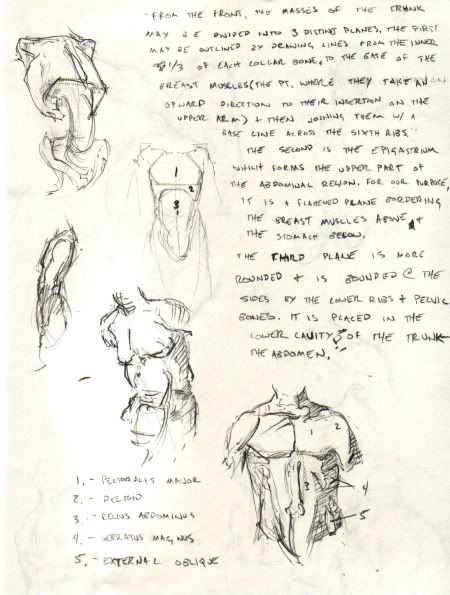 - FROM THE FRONT, THE MASSES OF THE TRUNK
MAY BE DIVIDED INTO 3 DISTINT PLANES, THE FIRST
MAY BE OUTLINED BY DRAWING LINES FROM THE INNER
1/3 OF EACH COLLAR BONE, TO THE BASE OF THE
BREAST MUSCLES (THE PT. WHERE THEY TAKE AN
UPWARD DIRECTION TO THEIR INSERTION ON THE
UPPER ARM) + THEN JOINING THEM W/ A
BASE LINE ACROSS THE SIXTH RIBS.
THE SECOND IS THE EPIGASTRIUM
WHICH FORMS THE UPPER PART OF
THE ABDOMINAL REGION. FOR OUR PURPOSE,
IT IS A FLATTENED PLANE BORDERING
THE BREAST MUSCLES ABOVE +
THE STOMACH BELOW.
THE THIRD PLANE IS MORE
ROUNDED + IS BOUNDED @ THE
SIDES BY THE LOWER RIBS + PELVIC
BONES. IT IS PLACED IN THE
LOWER CAVITY OF THE TRUNK
THE ABDOMEN.
1
2
3
1
2
3
4
5
1. - PECTORALIS MAJOR
2. - DELTOID
3. - RECTUS ABDOMINUS
4. - SERRATUS MAGNUS
5. - EXTERNAL OBLIQUE